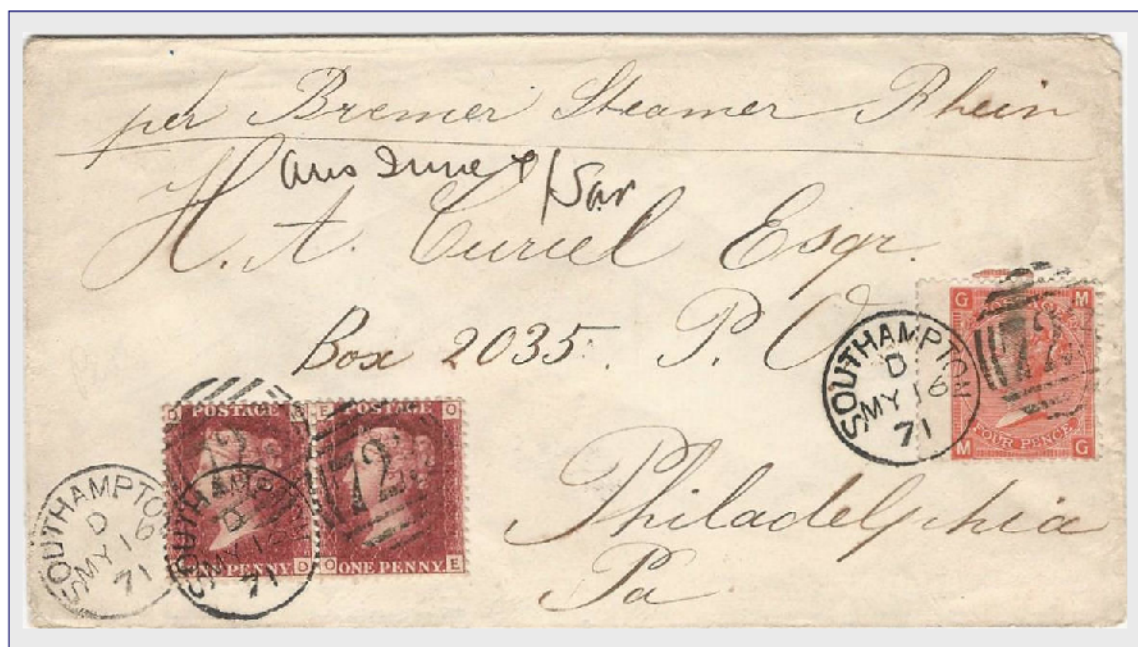 per Bremer Steamer Rhein
H. A. Curiel Esqr.
Box 2035. P. O
Philadelphia
Pa
SOUTHAMPTON
D
MY 16
71
G M
FOUR PENCE
M G
72
POSTAGE
ONE PENNY
D
E O
POSTAGE
O E
ONE PENNY
72
SOUTHAMPTO
D
MY 16
71
SOUTHAMPT
D
MY 16
71